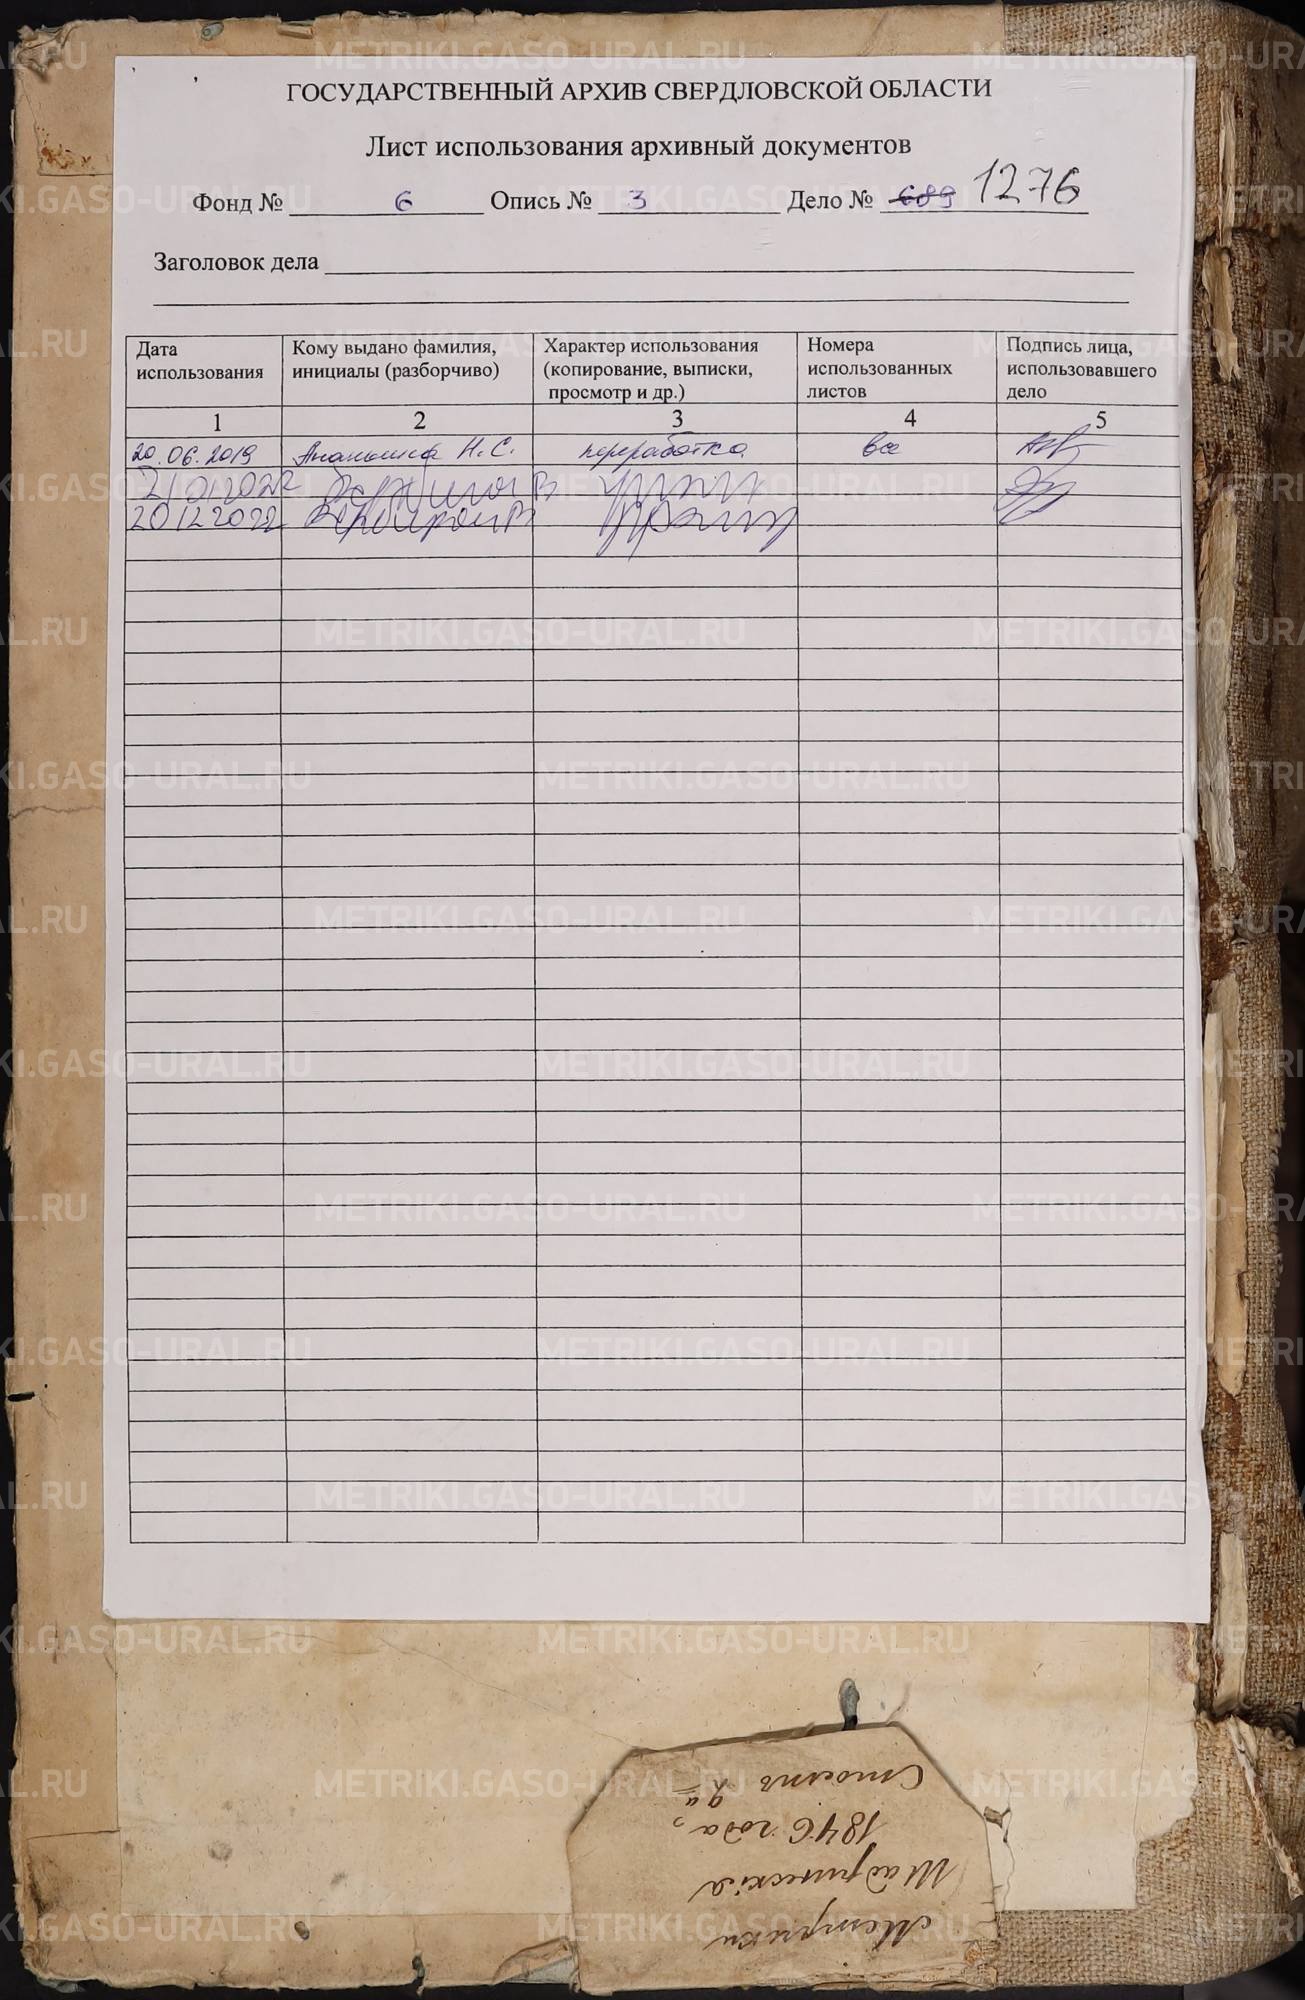 ГОСУДАРСТВЕННЫЙ АРХИВ СВЕРДЛОВСКОЙ ОБЛАСТИ
Лист использования архивный документов
Фонд № 6 Опись № 3 Дело № 689 1276
Заголовок дела
Дата использования
Кому выдано фамилия, инициалы (разборчиво)
Характер использования (копирование, выписки, просмотр и др.)
Номера использованных листов
Подпись лица, использовавшего дело
1 2 3 4 5
20.06.2019 Ананьина Н.С. переработка все
20 12 2022
Метрики
Шадринскія
1846 года,
Столпъ 9й
METRIKI.GASO-URAL.RU